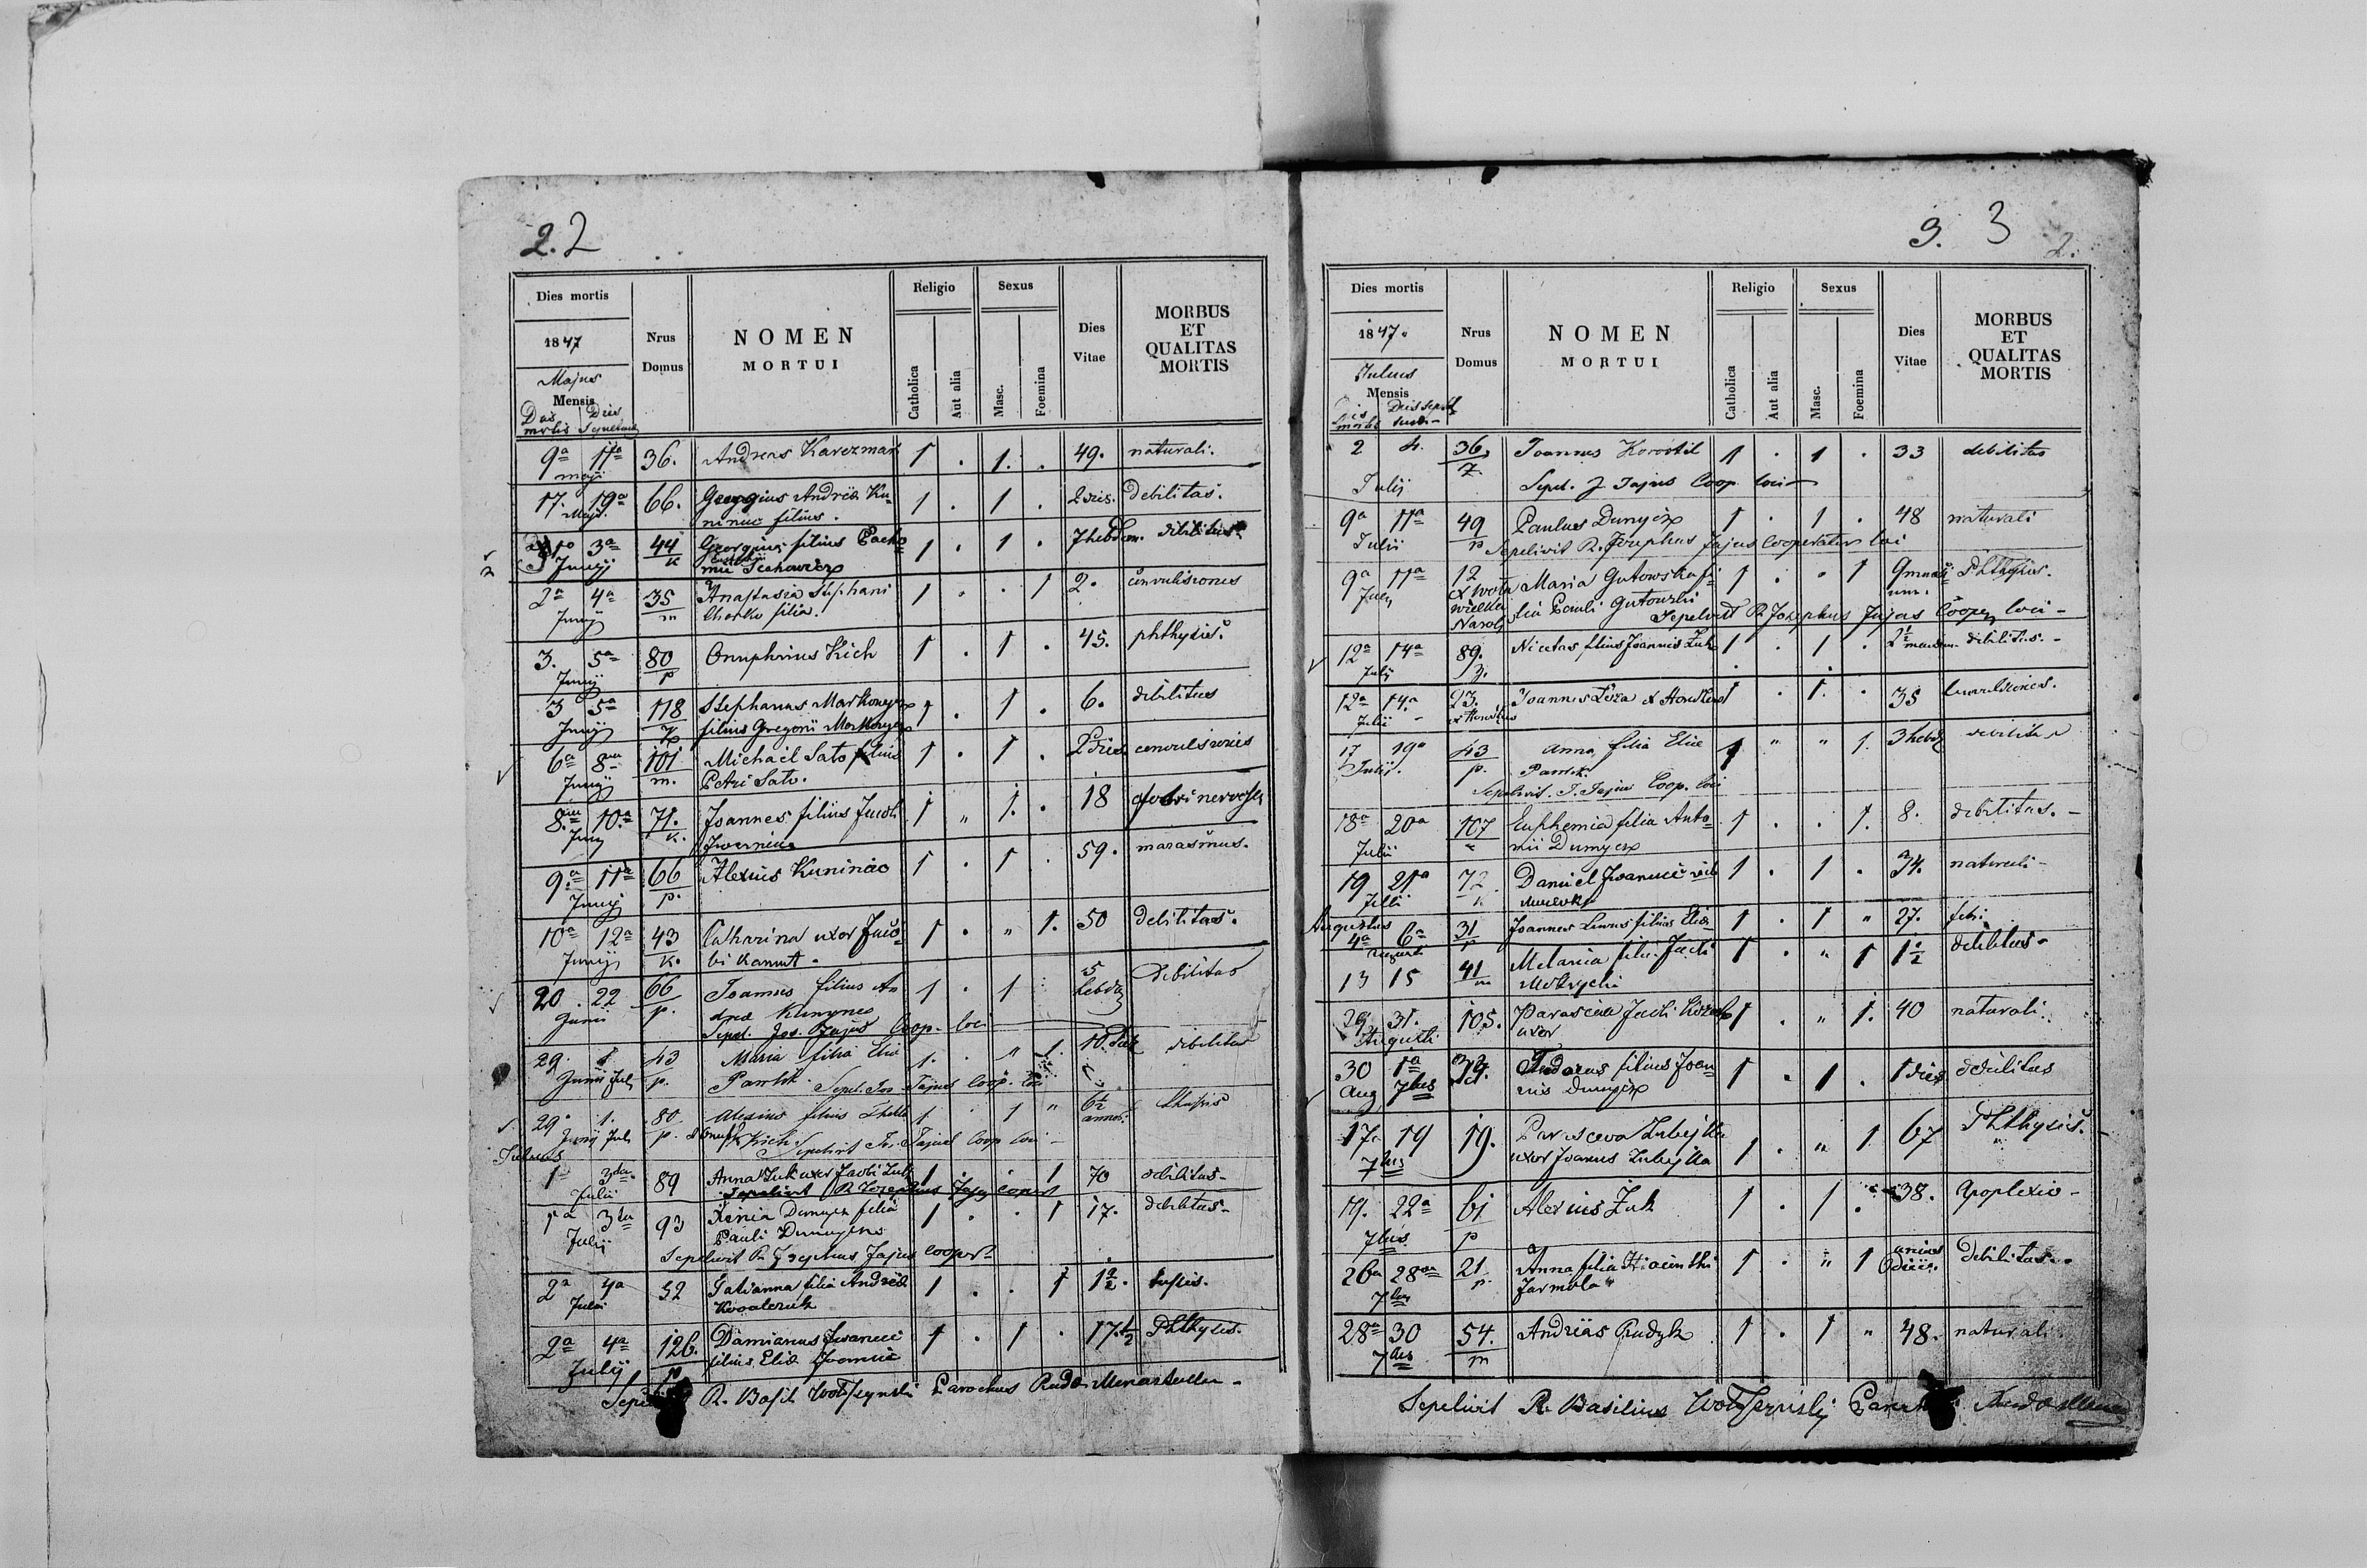 2. 2
Dies mortis
1847
Majus
Mensis
Dies mortis
Dies Sepulturae
Nrus Domus
NOMEN MORTUI
Religio
Catholica
Aut alia
Sexus
Masc.
Foemina
Dies Vitae
MORBUS ET QUALITAS MORTIS
9a 11a 36. Andreas Karczmar 1 . 1. . 49. naturali.
maji
17. 19a 66. Georgius Andreä Ku- 1 . 1 . 2 dies. Debilitas.
Maji. niniec filius.
31o 3a 44 Georgius filius 1 . 1 . 7 hebdom. debilitas
Junij k
2a 4a 35 Anastasia Stephani 1 . . 1 2. convulsiones
Junij m filia.
3. 5a 80 Onuphrius Kich 1 . 1 . 45. phthysis.
Junij p
3 5a 118 Stephanus Markowycz 1 . 1 . 6. debilitas
Junij filius Gregorii Markowycz
6a 8va 101 Michael Sato filius 1 . 1 . 2 dies convulsiones
Junij m. Petri Sato.
8va 10a 71. Joannes filius Jacobi 1 " 1. . 18 febri nervosa
Junij k.
9a 11a 66 Alexius Kuniniec 1 . 1 . 59. marasmus.
Junij p.
10a 12a 43 Catharina uxor Jaco- 1 . " 1. 50 debilitas.
Junij k. bi
20 . 22 66 Joannes filius An 1 . 1 5 hebda debilitas
Junii p. dreä
Sepel. Jos. Jajus Coop. loci
29. 1 43 Maria filia Eliä 1. . " 1. 10. debilitas
Junii Juli p. Pawlik Sepel. Jos. Jajus Coop. loci
29. 1. 80 Alexius filius 1 . 1 " 6½ annor.
Junij Juli p. Kich Sepelivit Jos. Jajus Coop loci
Julius
1a 3tia 89 Anna Zuk uxor Jacobi Zuk 1 . . 1 70 debilitas-
Julii Sepelivit R. Josephus Jajus Coper
1a 3tia 93 Xenia Dumycz filia 1 . . 1 17. debilitas-
Julij Pauli Dumycz
Sepelivit R. Josephus Jajus cooper-
2a 4a 52 Tatianna filia Andreä 1 . . 1 1½. tussis.
Julii Kowalczuk
2a 4a 126. Damianus Iwaniec 1 . 1 . 17.½ Phthysis.
Julij p filius Eliä Iwaniec
R. Basil Parochus Rudae Monasterien-
3. 3
2.
Dies mortis
1847.
Julius
Mensis
Nrus Domus
NOMEN MORTUI
Religio
Catholica
Aut alia
Sexus
Masc.
Foemina
Dies Vitae
MORBUS ET QUALITAS MORTIS
2 4. 36. Joannes Korostil 1 . 1 . 33 debilitas
Julij Sepel. J Jajus Coop loci
9a 11a 49 Paulus Dumycz 1 . 1 . 48 naturali
Julii p Sepelivit R. Josephus Jajus Cooperator loci
9a 11a 12 Maria Gutowska fi- 1 . " 1 Phthysis.
Julij lia Pauli Gutowski
Sepelivit R Josephus Jajus Cooper loci-
12a 14a 89. Nicetas filius Joannis Zuk 1 . 1 . 2½ debilitas.-
Julij
12a 14a 23. Joannes 1 . 1. . 35 Convulsiones.
Julii
17 19a 43 Anna filia Eliä 1 " " 1. 3 hebd debilitas
Julij. p. Pawlik.
Sepelivit. J. Jajus Coop. loci
18a 20a 107 Euphemia filia Anto- 1 . . 1. 8. debilitas.-
Julii nii Dumycz
19 21a 72 Daniel Iwaniec 1 . 1 . 34. naturali-
Julii k
Augustus
4a 6a 31 Joannes filius Eliä 1 . 1 " 27. febri
13 15 41 Melania filia Jacobi 1 . " 1 1½ debilitas-
m
29 31. 105. Parascena Jacobi 1 . " 1. 40 naturali.
Augusti uxor
30 1a Andreas filius Joan- 1 . 1 . 1 dies debilitas
Aug 7bris nis Dumycz
17. 19 19. Parasceva Zubejtka 1 . " 1 67 Phthysis.
7bris uxor Joannis Zubejtka
19. 22a 61 Alexius Zuk 1 . 1 . 38. Apoplexio-
7bris p
26a 28va 21 Anna filia Hiacinthi 1 . " 1 unius diei. Debilitas.
7bris p. Jarmola
28a 30 54. Andreas Rudyk 1 . 1 " 48. naturali
7bris m
Sepelivit R. Basilius